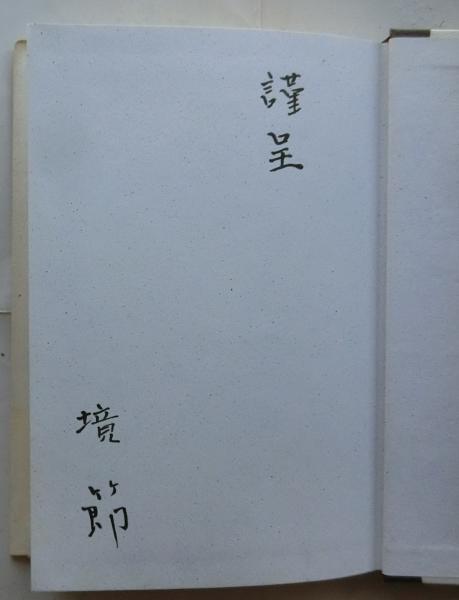 謹呈
境節